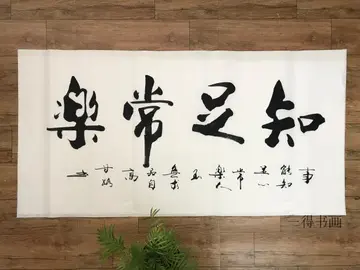 知足常樂
事能知足心常樂人到無求品自高
得书画